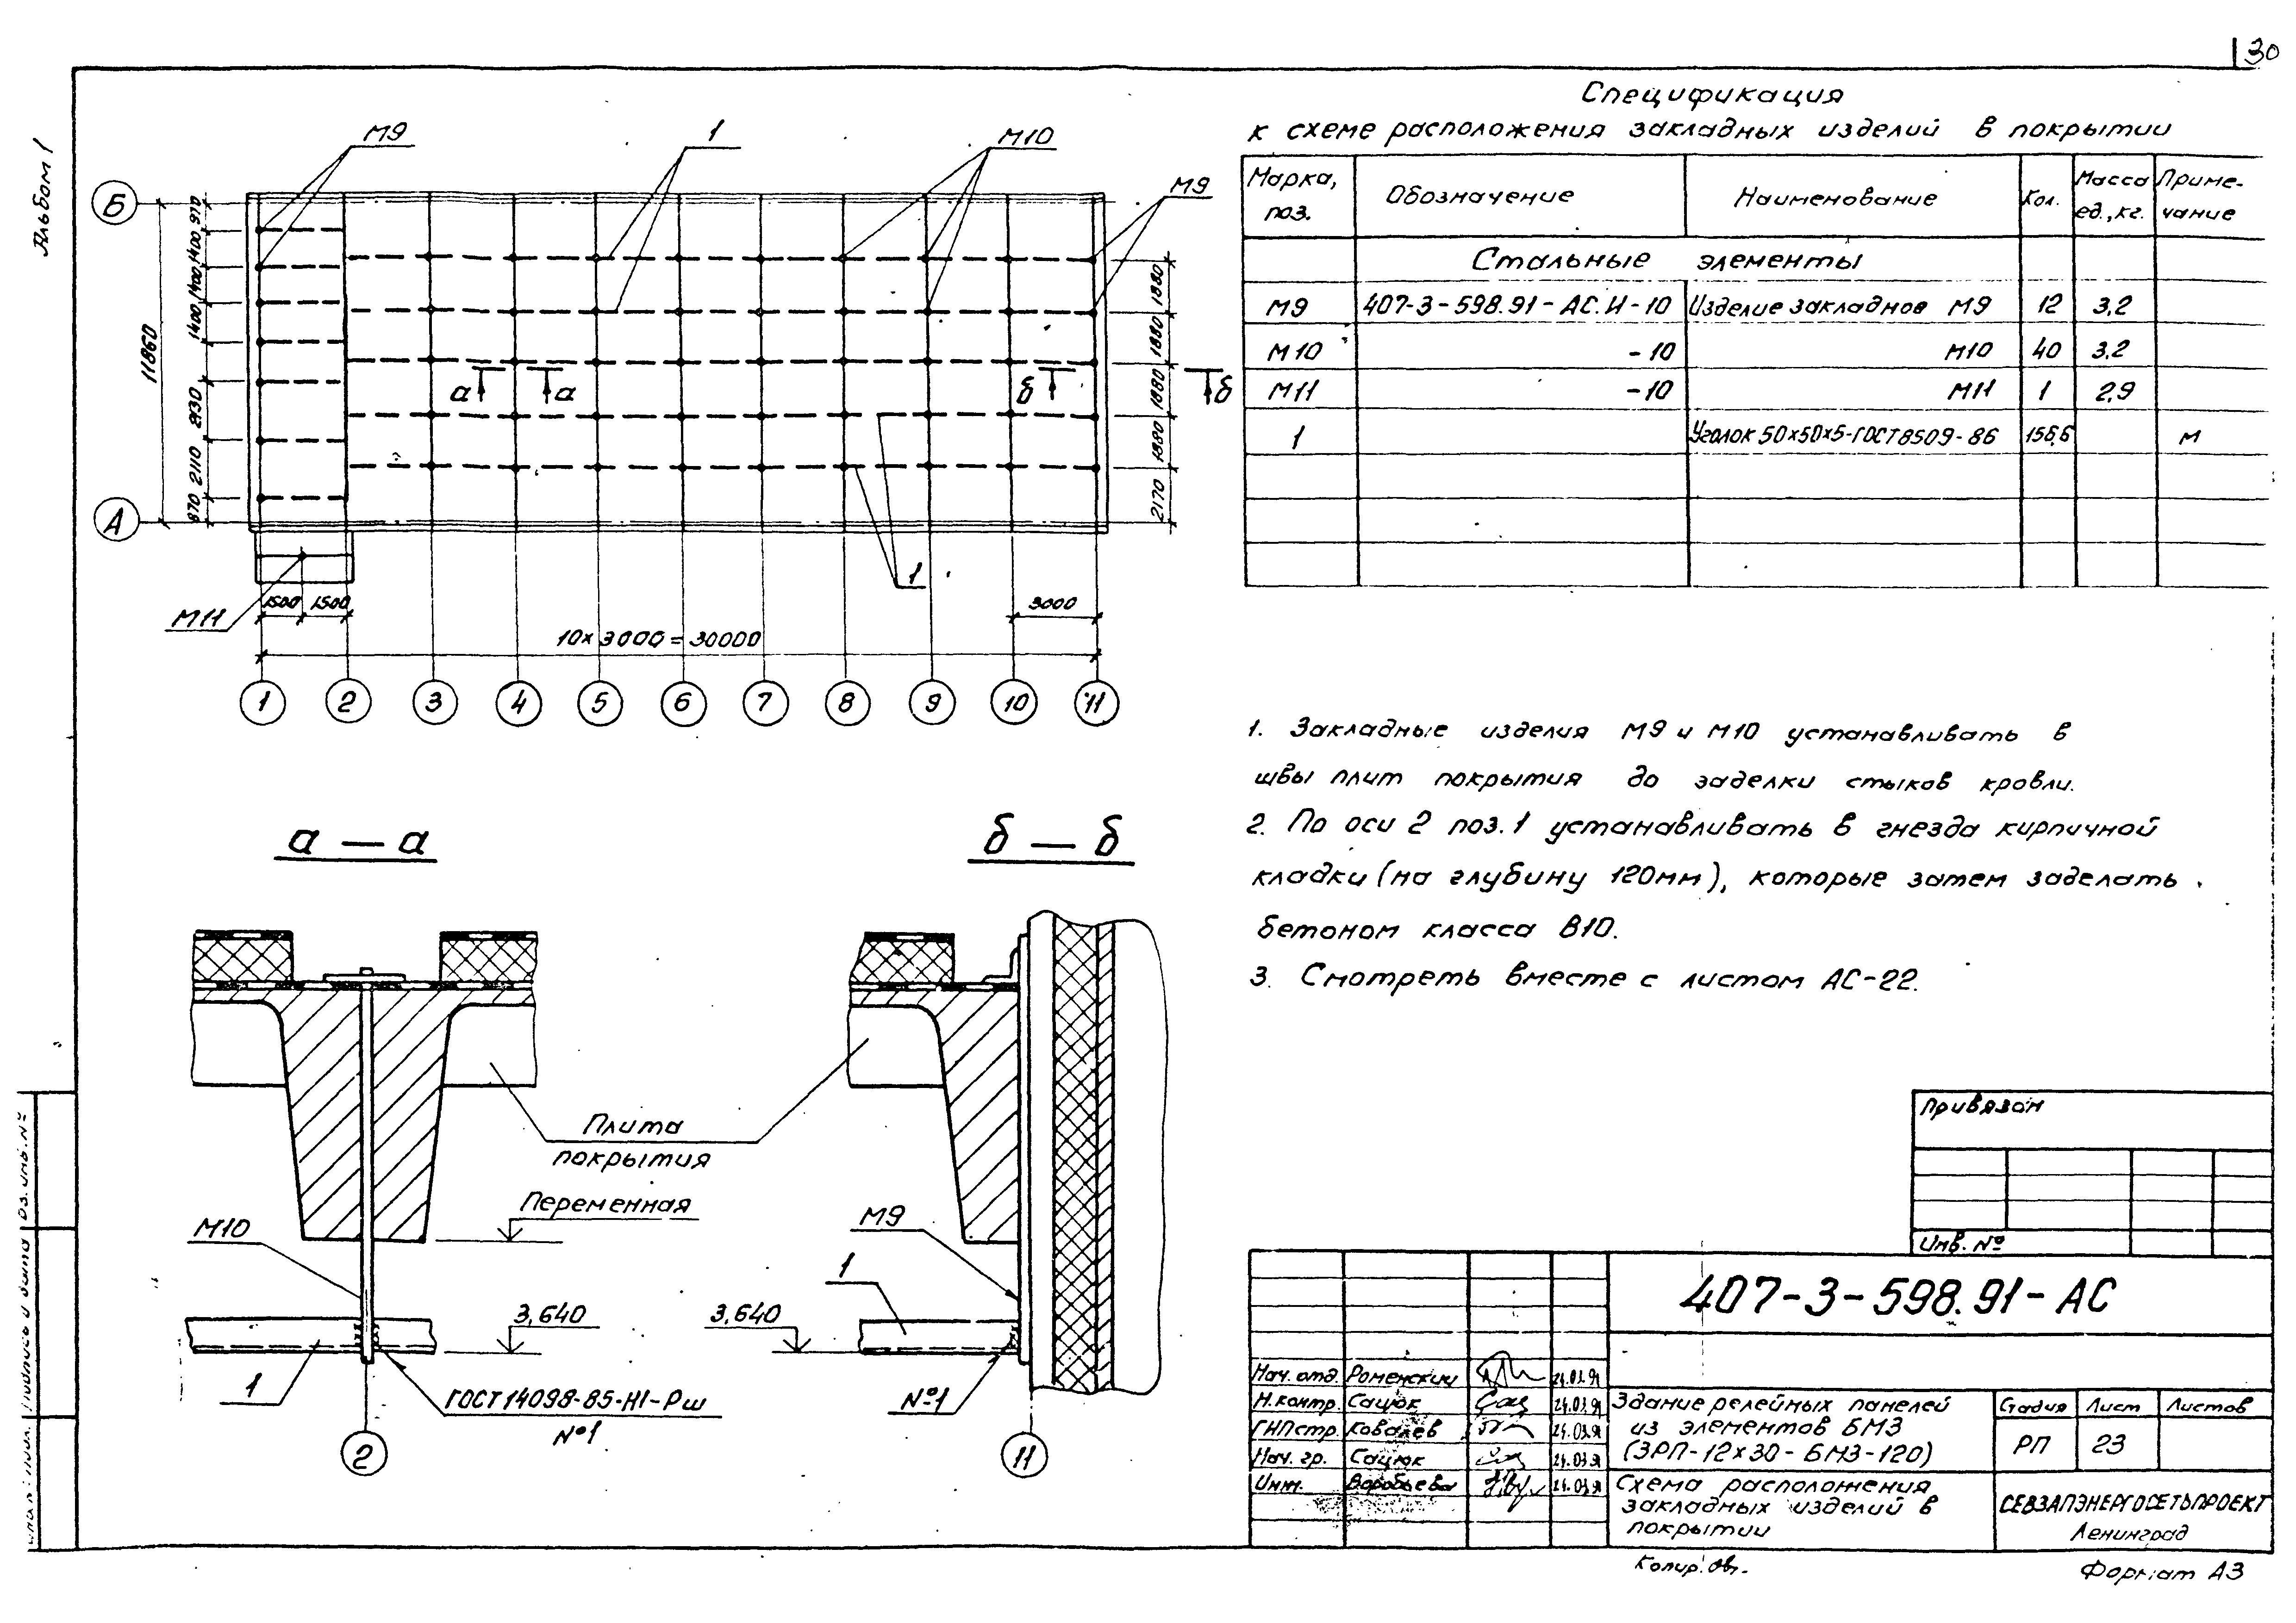 30
Альбом 1
Спецификация
к схеме расположения закладных изделий в покрытии
Марка, поз. Обозначение Наименование Кол. Масса ед., кг. Примечание
Стальные элементы
М9 407-3-598.91-АС.И-10 Изделие закладное М9 12 3,2
М10 -10 М10 40 3,2
М11 -10 М11 1 2,9
1 Уголок 50х50х5-ГОСТ 8509-86 156,6 м
М9
1
М10
М9
Б
А
11860
970
1400
1400
1400
2830
2110
870
1880
1880
1880
1880
2170
а
а
б
б
1
М11
1500
1500
3000
10х3000=30000
1
2
3
4
5
6
7
8
9
10
11
1. Закладные изделия М9 и М10 устанавливать в
швы плит покрытия до заделки стыков кровли.
2. По оси 2 поз. 1 устанавливать в гнезда кирпичной
кладки (на глубину 120мм), которые затем заделать
бетоном класса В10.
3. Смотреть вместе с листом АС-22.
а — а
Плита
покрытия
Переменная
М10
3,640
1
ГОСТ 14098-85-Н1-Рш
№1
2
б — б
М9
1
3,640
№1
11
Привязан
Инв. №
407-3-598.91-АС
Нач. отд. Роменский 24.03.91
Н.контр. Сацюк 24.03.91
ГИП стр. Ковалев 24.03.91
Нач. гр. Сацюк 24.03.91
Инж. Воробьева 24.03.91
Здание релейных панелей
из элементов БМЗ
(ЗРП-12х30-БМЗ-120)
Стадия Лист Листов
РП 23
Схема расположения
закладных изделий в
покрытии
СЕВЗАПЭНЕРГОСЕТЬПРОЕКТ
Ленинград
Копир.
Формат А3